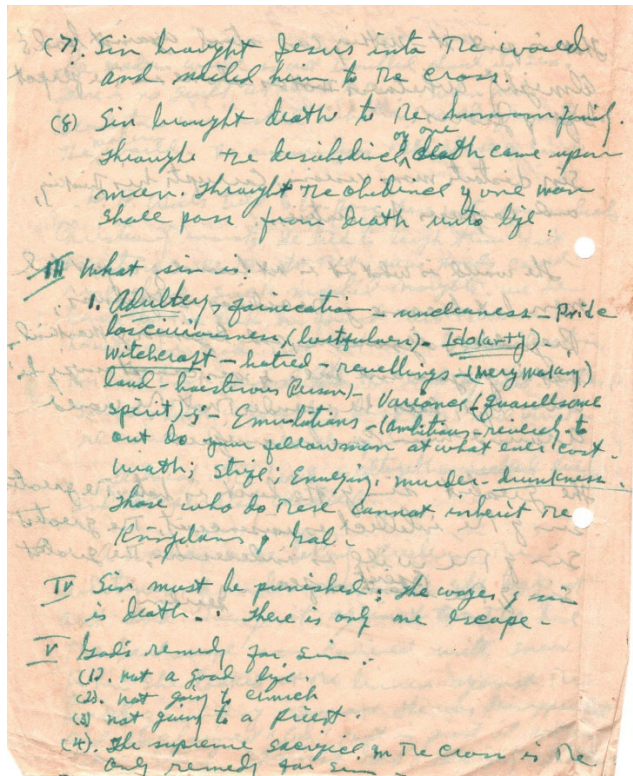 (7). Sin brought Jesus into the world
and nailed him to the cross.
(8) Sin brought death to the human family.
Throught the desobidince of one death came upon
man. Throught the obidince of one man
shall pass from death unto life.
III What sin is:
1. Adultery, fornication - uncleaness - Pride
lasciviousness, (lustfulness) - Idolarty) -
Witchcraft - hatred - revellings - (mery making)
loud - boisterous Person) - Variance (quarellsome
spirit); - Emulations - (ambitions - revelry - to
out do your fellowman at what ever cost -
wrath; strife; Envying, murder - drunkness.
Those who do these cannot inherit the
Kingdom of God -
IV Sin must be punished: The wages of sin
is death. . There is only one escape -
V God's remedy for sin:
(1). not a good life.
(2). not going to church
(3) not going to a priest.
(4). The supreme sacrifice on the cross is the
only remedy for sin -